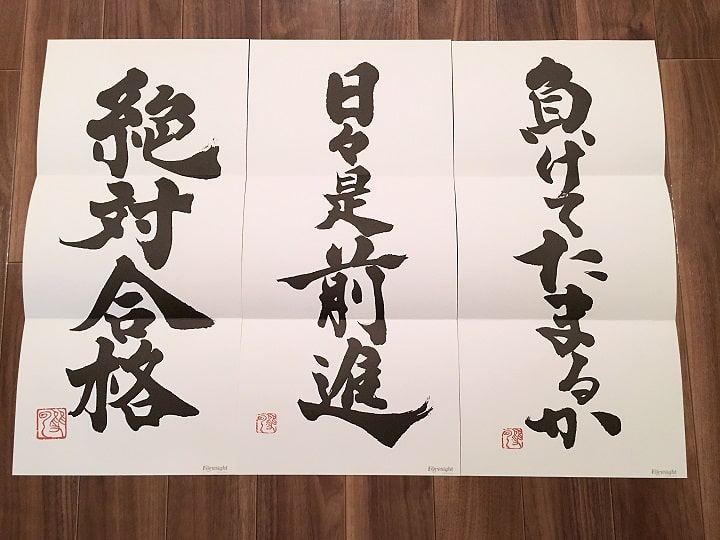 負けてたまるか
日々是前進
絶対合格
Foresight
Foresight
Foresight